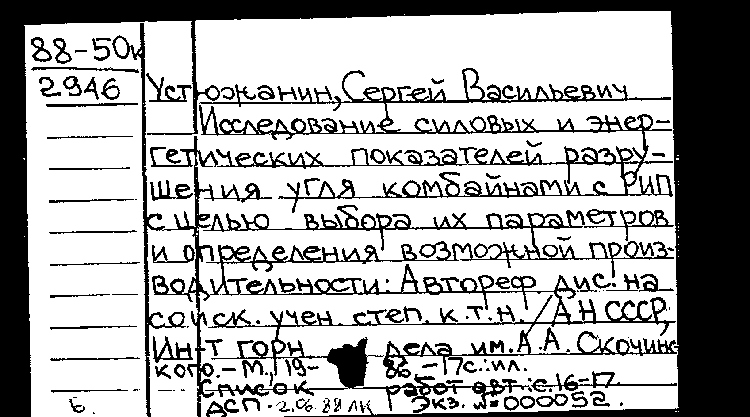 88-50к
2946
Устюжанин, Сергей Васильевич
Исследование силовых и энер-
гетических показателей разру-
шения угля комбайнами с РИП
с целью выбора их параметров
и определения возможной произ-
водительности: Автореф. дис. на
соиск. учен. степ. к.т.н. / АН СССР,
Ин-т горн дела им. А.А. Скочинс
кого. - М., 19- 86. - 17с.: ил.
Список работ авт.: с.16-17.
ДСП. 2.06.88 ЛК Экз. №000052.
Б.